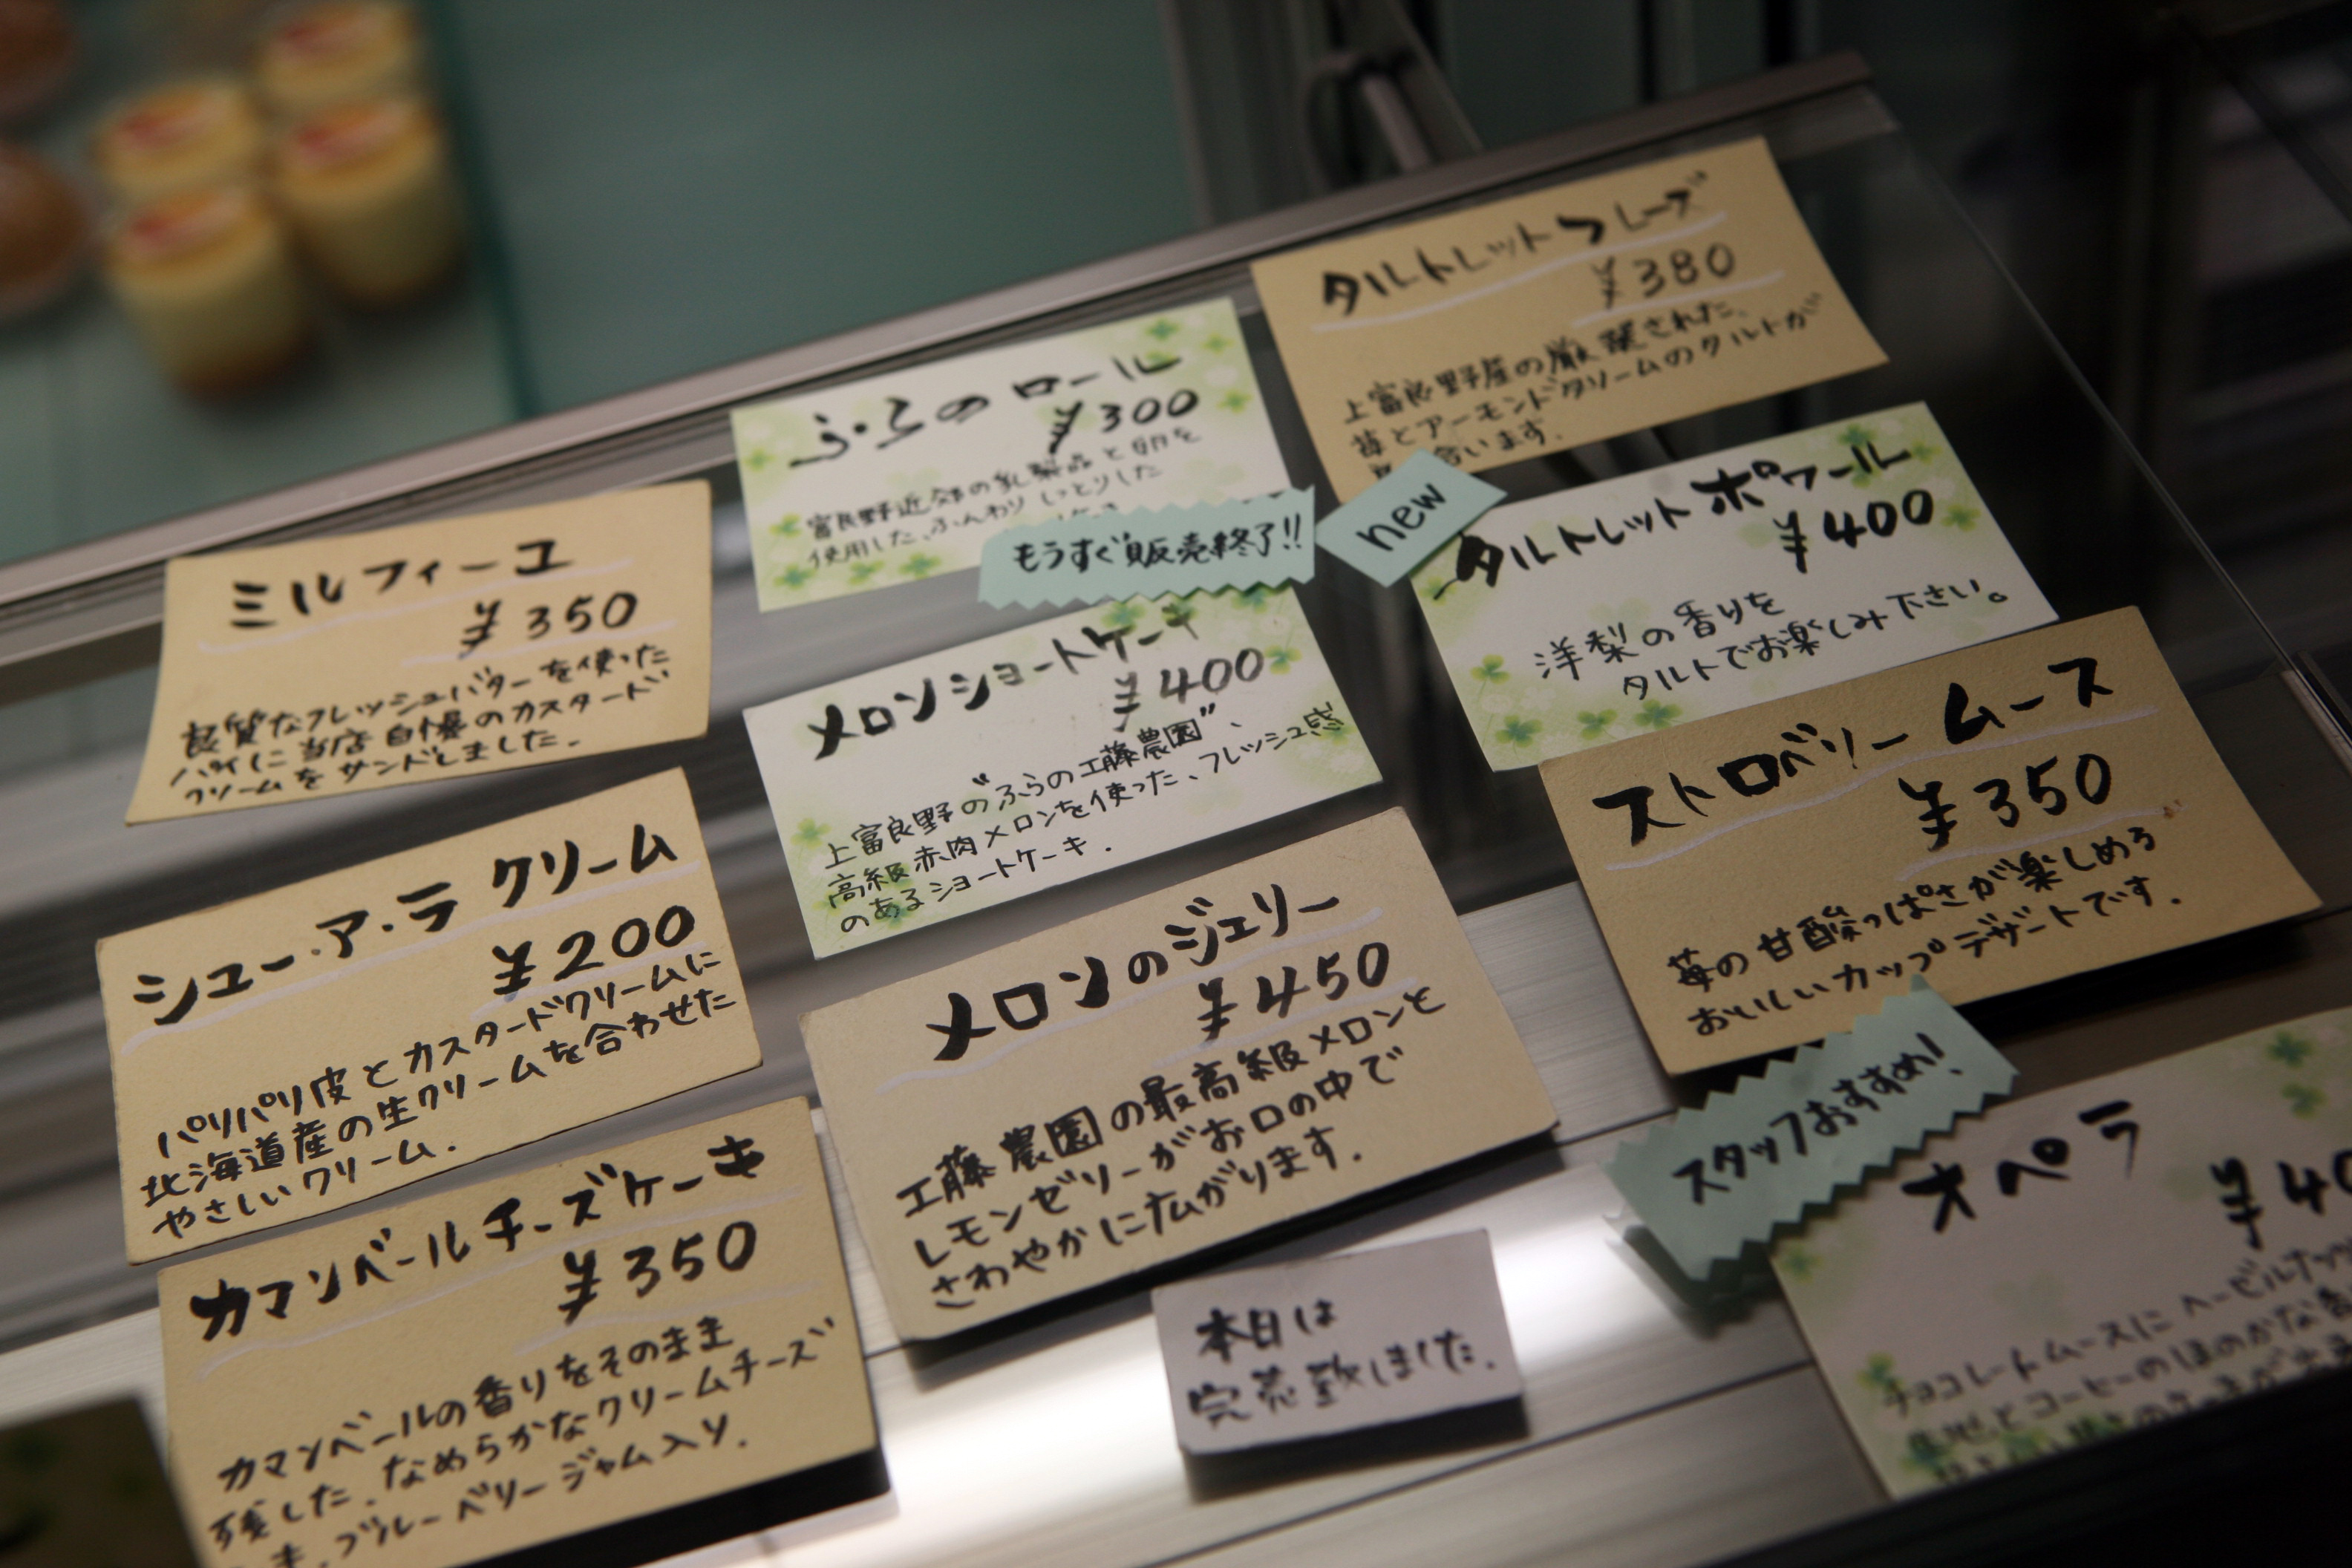 タルトレットフレーズ
¥380
上富良野産の厳選された、
苺とアーモンドクリームのタルトが
合います.
ふらのロール
¥300
富良野近郊の乳製品と卵を
使用した、ふんわりしっとりした
もうすぐ販売終了!!
new
タルトレット ポワール
¥400
洋梨の香りを
タルトでお楽しみ下さい。
ミルフィーユ
¥350
良質なフレッシュバターを使った
パイに当店自慢のカスタード
クリームをサンドしました.
メロンショートケーキ
¥400
上富良野の"ふらの工藤農園"、
高級赤肉メロンを使った、フレッシュ感
のあるショートケーキ.
ストロベリー ムース
¥350
苺の甘酸っぱさが楽しめる
おいしいカップデザートです.
シュー・ア・ラ クリーム
¥200
パリパリ皮とカスタードクリームに
北海道産の生クリームを合わせた
やさしいクリーム.
メロンのジェリー
¥450
工藤農園の最高級メロンと
レモンゼリーがお口の中で
さわやかに広がります.
スタッフおすすめ!
オペラ
¥40
チョコレートムースにヘーゼルナッツ
生地とコーヒーのほのかな香
カマンベールチーズケーキ
¥350
カマンベールの香りをそのまま
残した、なめらかなクリームチーズ
ブルーベリージャム入り.
本日は
完売致しました.